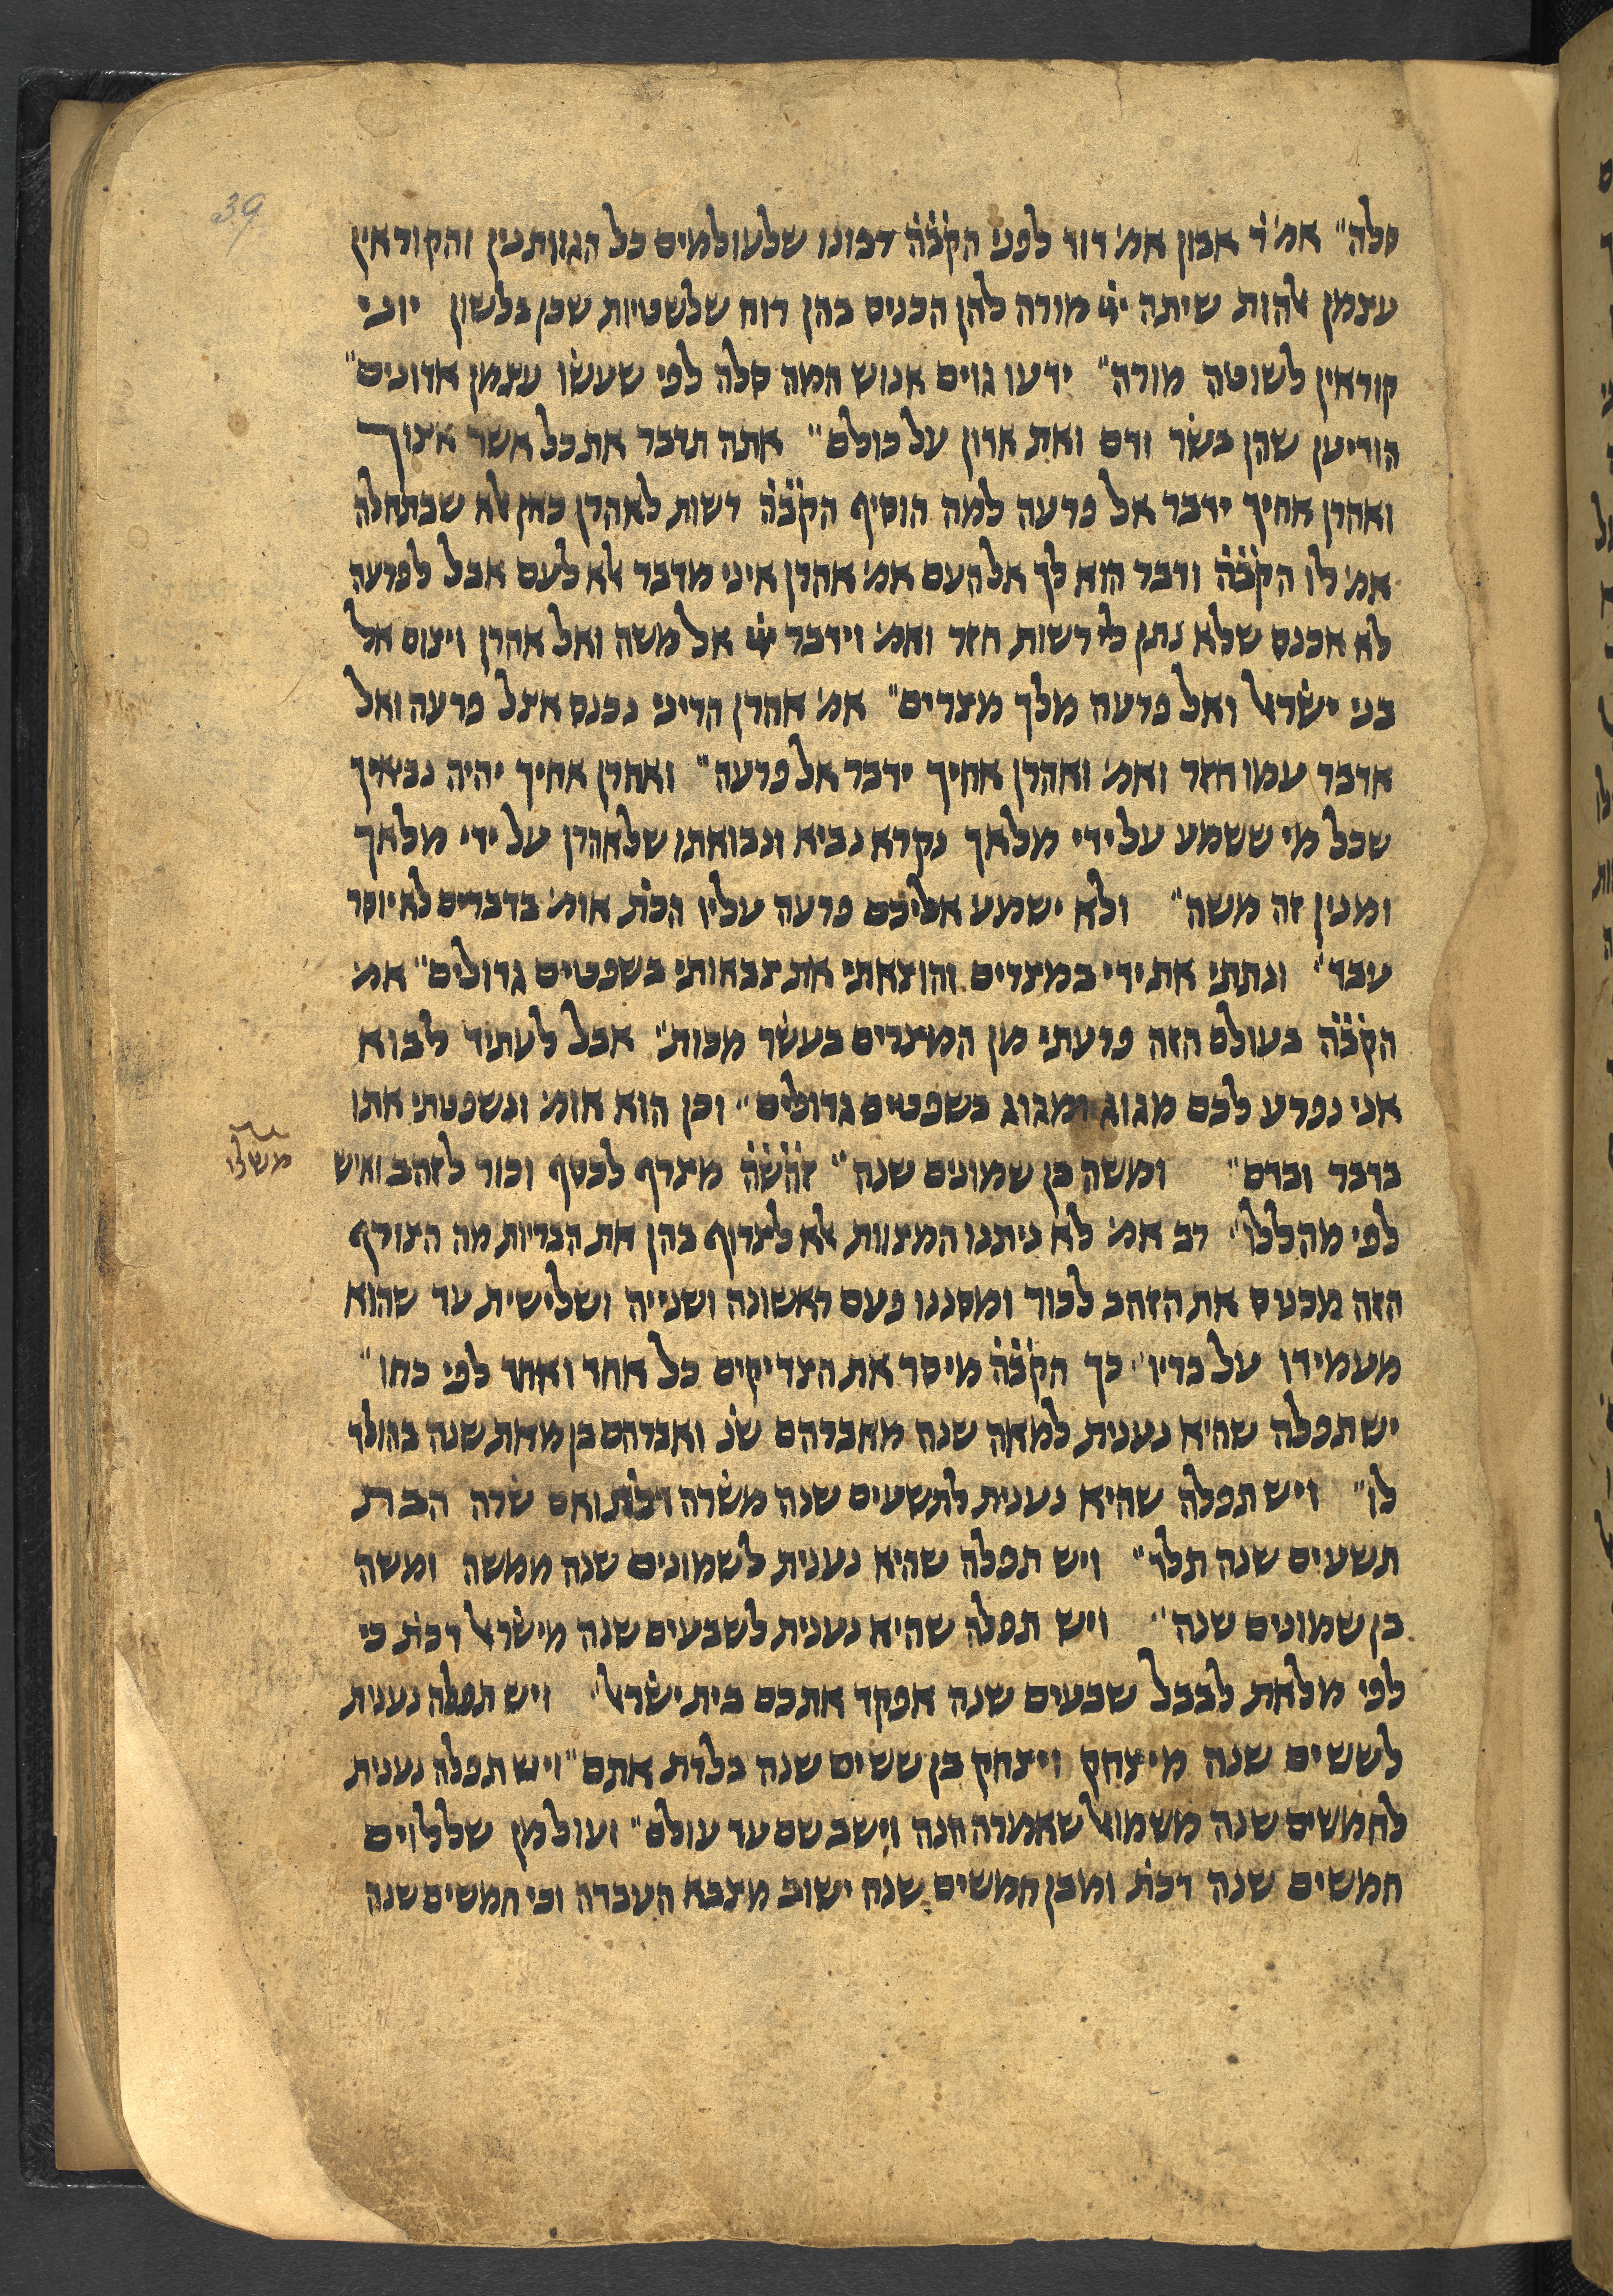 39
סלה״ אמ׳ ר׳ אבון אמ׳ דוד לפני הקבה רבונו שלעולמים כל הגוותנין והקוראין
עצמן אלהות שיתה ייי מורה להן הכניס בהן רוח שלשטיות שכן בלשון יוני
קוראין לשוטה מורה״ ידעו גוים אנוש המה סלה לפי שעשו עצמן אדונים״
הודיען שהן בשר ודם ואת אדון על כולם״ אתה תדבר את כל אשר אצוך
ואהרן אחיך ידבר אל פרעה למה הוסיף הקבה רשות לאהרן כאן אלא שבתחלה
אמ׳ לו הקבה ודבר הוא לך אל העם אמ׳ אהרן איני מדבר אלא לעם אבל לפרעה
לא אכנס שלא נתן לי רשות חזר ואמ׳ וידבר ייי אל משה ואל אהרן ויצום אל
בני ישראל ואל פרעה מלך מצרים״ אמ׳ אהרן הריני נכנס אצל פרעה ואל
אדבר עמו חזר ואמ׳ ואהרן אחיך ידבר אל פרעה״ ואהרן אחיך יהיה נביאיך
שכל מי ששמע על ידי מלאך נקרא נביא ונבואתו שלאהרן על ידי מלאך
ומנין זה משה״ ולא ישמע אליכם פרעה עליו הכת׳ אומ׳ בדברים לא יוסר
עבד״ ונתתי את ידי במצרים והוצאתי את צבאותי בשפטים גדולים״ אמ׳
הקבה בעולם הזה פרעתי מן המצרים בעשר מכות״ אבל לעתיד לבוא
אני נפרע לכם מגוג ומגוג בשפטים גדולים״ וכן הוא אומ׳ ונשפטתי אתו
בדבר ובדם״ ומשה בן שמונים שנה״ זהשה מצרף לכסף וכור לזהב ואיש
משלי
לפי מהללו״ רב אמ׳ לא ניתנו המצוות אלא לצרוף בהן את הבריות מה הצורף
הזה מכניס את הזהב לכור ומסננו פעם ראשונה ושנייה ושלישית עד שהוא
מעמידו על בריו״ כך הקבה מיסר את הצדיקים כל אחד ואחד לפי כחו״
יש תפלה שהיא נענית למאה שנה מאברהם שנ׳ ואברהם בן מאת שנה בהולד
לו״ ויש תפלה שהיא נענית לתשעים שנה משרה דכת׳ ואם שרה הבת
תשעים שנה תלד״ ויש תפלה שהיא נענית לשמונים שנה ממשה ומשה
בן שמונים שנה״ ויש תפלה שהיא נענית לשבעים שנה מישראל דכת׳ כי
לפי מלאת לבבל שבעים שנה אפקד אתכם בית ישראל״ ויש תפלה נענית
לששים שנה מיצחק ויצחק בן ששים שנה בלדת אתם״ ויש תפלה נענית
לחמשים שנה משמואל שאמרה חנה וישב שם עד עולם״ ועולמן שללוים
חמשים שנה דכת׳ ומבן חמשים שנה ישוב מצבא העבדה וכי חמשים שנה